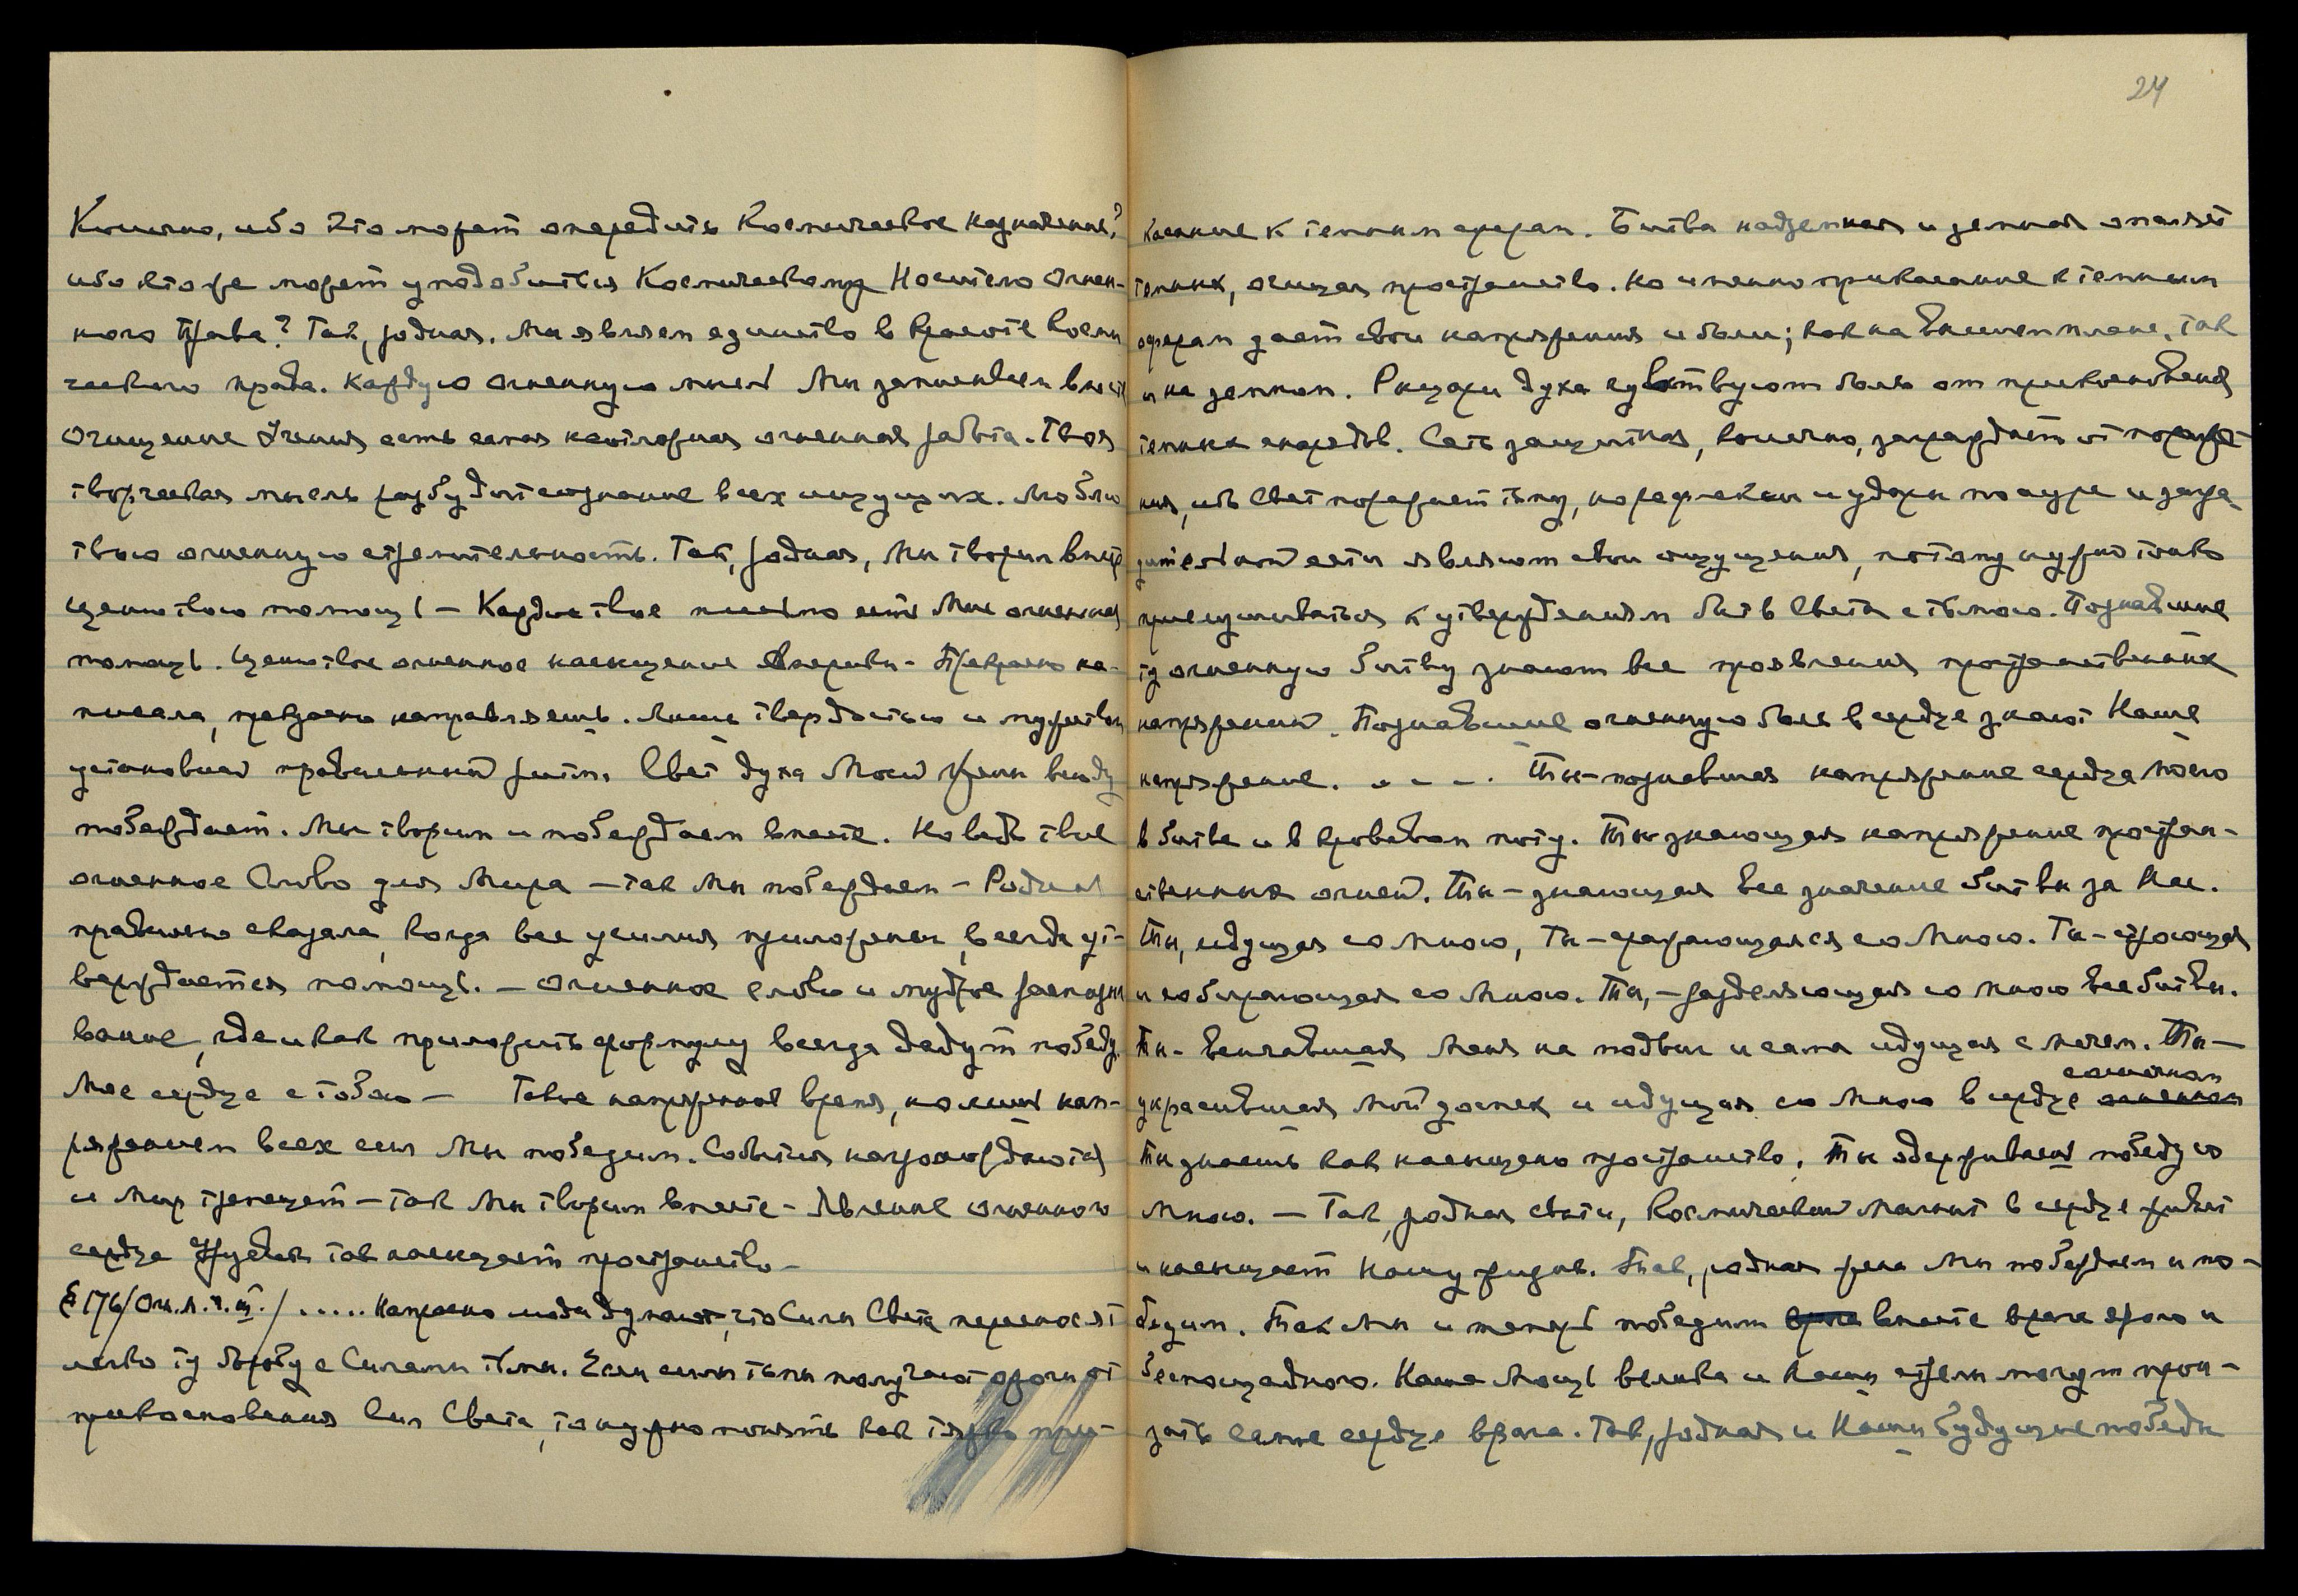 Конечно, ибо кто может опередить Космическое назначение?
ибо кто же может уподобиться Космическому Носителю Огнен-
ного Права? Так, родная. Мы являем единство в красоте Косми
ческого права. Каждую огненную мысль Мы запишем вместе
Очищение Учения есть самая неотложная огненная работа. Твоя
творческая мысль разбудит сознание всех ищущих. Люблю
твою огненную стремительность. Так, родная, Мы творим вместе
ценю твою помощь — Каждое твое письмо есть Мне огненная
помощь. Ценю твое огненное насыщение Америки - Прекрасно на-
писала, прекрасно направляешь. Лишь твердостью и мужеством
установишь правильный ритм. Свет духа Моей Урны всюду
побеждает. Мы творим и побеждаем вместе. Но ведь твое
огненное Слово для Мира — так Мы побеждаем - Родная
правильно сказала, когда все усилия приложены, всегда ут-
верждается помощь. — Огненное слово и мудрое распозна
вание, где и как приложить формулу всегда дадут победу.
Мое сердце с тобою — Такое напряженное время, но лишь нап-
ряжением всех сил Мы победим. События нагромождаются
и Мир трепещет — так Мы творим вместе - Явление огненного
сердца Урусвати так насыщает пространство -
§ 176/Ои. М. ч. III. / ..... Напрасно люди думают, что Силы Света переносят
легко ту борьбу с Силами тьмы. Если силы тьмы получают ожоги от
прикосновения Сил Света, то нужно понять как тяжко при-
24
касание к темным сферам. Битва надземная и земная опаляет
темных, очищая пространство. Но именно прикасание к темным
сферам дает свои напряжения и боли; как на высшем плане, так
и на земном. Рыцари духа чувствуют боль от прикосновения
темных снарядов. Сеть защитная, конечно, заграждает от пораже-
ния, ибо Свет поражает тьму, но рефлексы и удары по ауре и загра
дительной сети являют свои ощущения, потому нужно тонко
прислушиваться к утверждениям битв Света с тьмою. Познавшие
ту огненную битву знают все проявления пространственных
напряжений. Познавшие огненную боль в сердце знают Наше
напряжение. . . . . Ты - познавшая напряжение сердца Моего
в битве и в кровавом поту. Ты знающая напряжение простран-
ственных огней. Ты - знающая все значение битвы за Нас.
Ты, идущая со Мною, Ты - сражающаяся со Мною. Ты - строющая
и собирающая со Мною. Ты, - разделяющая со Мною все битвы.
Ты - венчавшая Меня на подвиг и сама идущая с мечем. Ты —
солнечном
украсившая Мой доспех и идущая со Мною в сердце огненном
Ты знаешь как насыщено пространство. Ты одерживаешь победу со
Мною. — Так, родная свати, Космический Магнит в сердце живет
и насыщает Нашу жизнь. Так, родная жена Мы побеждаем и по-
бедим. Так Мы и теперь победим врага вместе врага ярого и
беспощадного. Наша Мощь велика и Наши стрелы могут прон-
зить самое сердце врага. Так, родная и Наши будущие победы